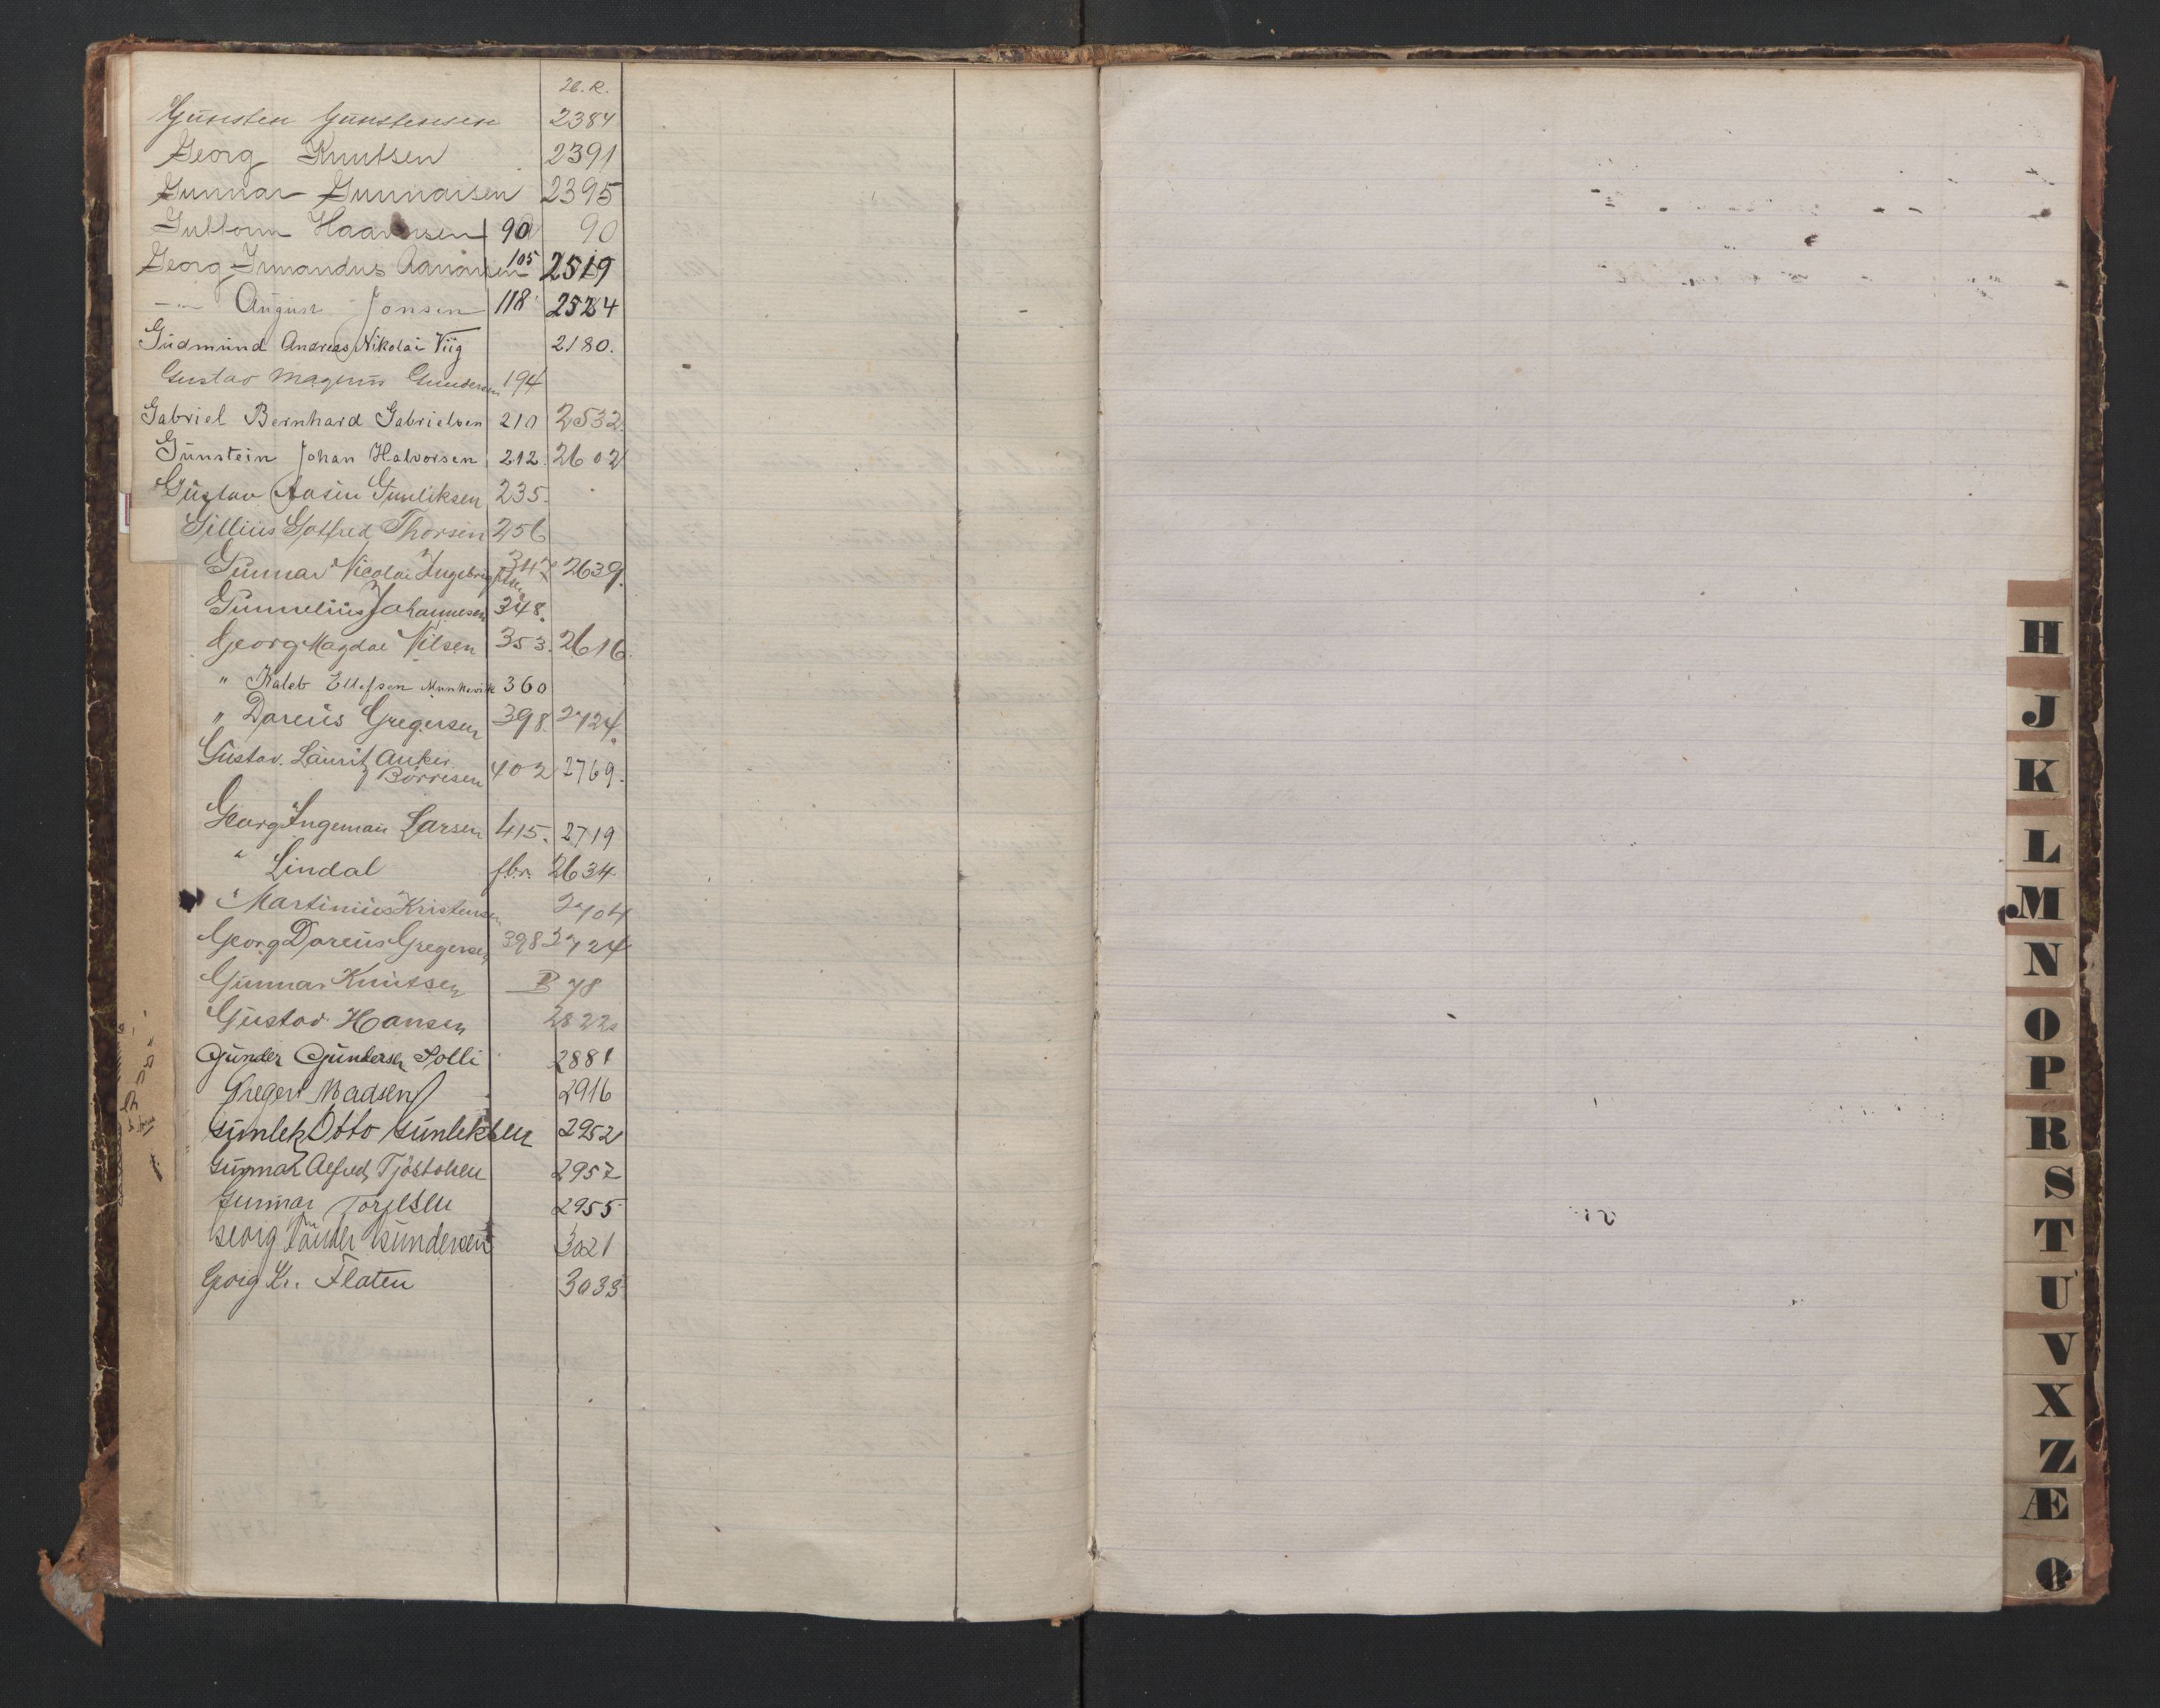 H. R.
Gunsten Gunstensen 2384
Georg Knutsen 2391
Gunnar Gunnarsen 2395
Guttorm 90 90
Georg Aanonsen 105 2519
-"- August Jonsen 118 2524
Gudmund Andreas Nikolai Viig 2180.
Gustav Magnus Gundersen 194
Gabriel Bernhard Gabrielsen 210 2532.
Gunstein Johan Halvorsen 212. 2602
Gustav Aasin Gunliksen 235.
Gillius Gotfred Thorsen 256
Gunnar Nicolai Ingebrigtsen 347 2639.
Gunnelius Johannesen 348.
Georg Magdal Nilsen 353. 2616.
" Kaleb Ellefsen Munkevik 360
" Dareus Gregersen 398. 2724.
Gustav. Laurit Anker
Börresen 402 2769.
Georg Ingeman Larsen 415. 2719
" Lindal fbr. 2634
" Martinius Kristensen 2704
Georg Dareus Gregersen 398 2724
Gunnar Knutsen B 78
Gustav Hansen 2822
Gunder Gundersen Solli 2881
Gregert Madsen 2916
Gunlek Otto Gunleksen 2952
Gunnar Alfred Tjöstolsen 2957
Gunnar Torjusen 2955
Georg Gundersen 3021
Georg Kr. Flaten 3033
H
J
K
L
M
N
O
P
R
S
T
U
V
X
Z
Æ
Ø